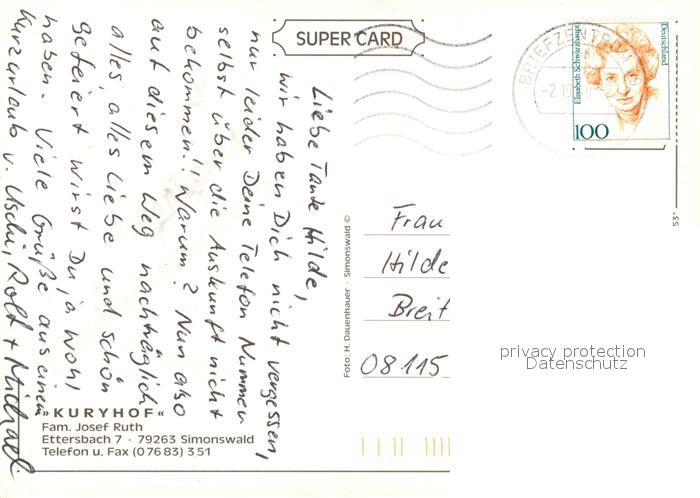 SUPER CARD
Liebe Tante Hilde,
wir haben Dich nicht vergessen,
nur leider Deine Telefon Nummer
selbst über die Auskunft nicht
bekommen!! Warum? Nun also
auf diesem Weg nachträglich
alles, alles Liebe und schön
gefeiert wirst Du ja wohl
haben. Viele Grüße aus einem
Kurzurlaub v. Uschi, Rolf + Michael
»KURYHOF«
Fam. Josef Ruth
Ettersbach 7 · 79263 Simonswald
Telefon u. Fax (0 76 83) 3 51
Foto: H. Dauenhauer · Simonswald ©
BRIEFZENTRUM
-2.10
Elisabeth Schwarzhaupt
Deutschland
100
53*
Frau
Hilde
Breit
08115
privacy protection
Datenschutz